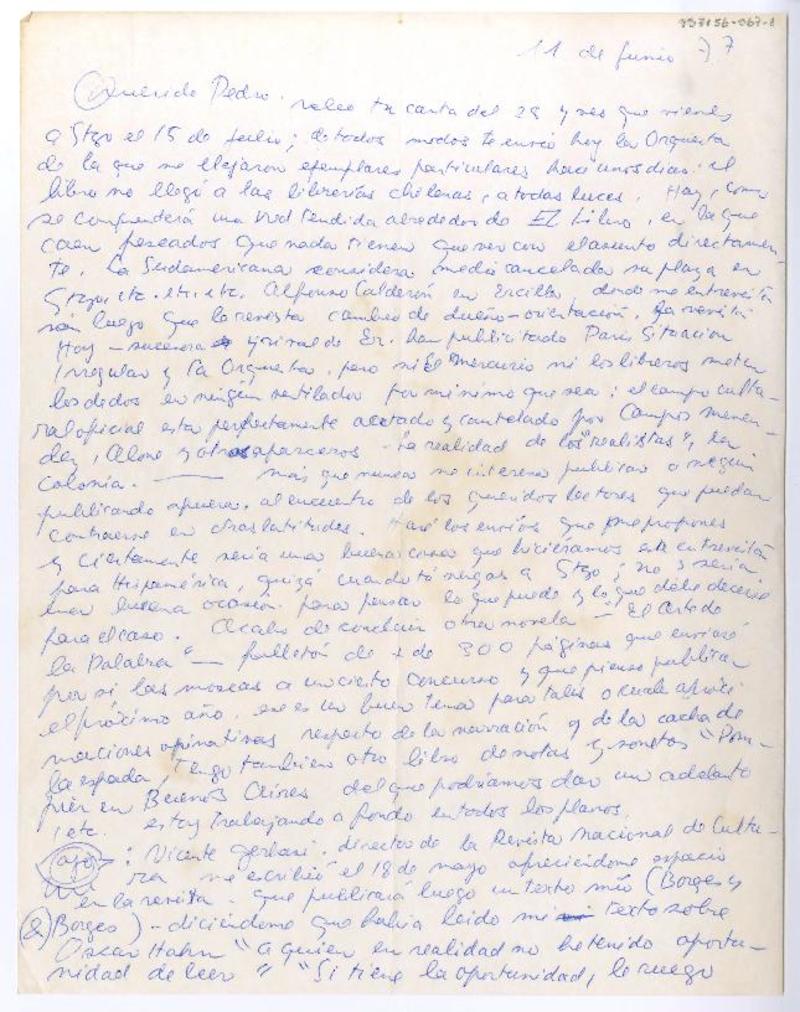 997156-067-1
11 de junio 77
Querido Pedro. releo tu carta del 29 y veo que vienes
a Stgo el 15 de Julio; de todos modos te envío hoy la Orquesta
de la que me llegaron ejemplares particulares hace unos días: el
libro no llegó a las librerías chilenas, a todas luces. Hay, como
se comprenderá una red tendida alrededor de El Libro, en la que
caen pescados que nada tienen que ver con el asunto directamen-
te. La Sudamericana considera medio cancelada su plaza en
Stgo, etc. etc. etc. Alfonso Calderón en Ercilla donde me entrevista
ron luego que la revista cambió de dueño-orientación. La revista
Hoy - sucesora y rival de Er. han publicitado París Situación
Irregular y La Orquesta. pero ni El Mercurio ni los libreros meten
los dedos en ningún ventilador por mínimo que sea: el campo cultu-
ral oficial esta perfectamente acotado y cautelado por Campos Menen-
dez, Alone y otros aparceros - la realidad de los "realistas", la
Colonia. —— Más que nunca me interesa publicar o seguir
publicando afuera. al encuentro de los queridos lectores que puedan
contraerse en otras latitudes. Haré los envíos que me propones
y ciertamente sería una buena cosa que hiciéramos esta entrevista
para Hispamérica, quizá cuando tú vengas a Stgo; no sería
mala ocasión para pensar lo que puede y lo que debe decirse
para el caso. Acabo de concluir otra novela - "El Arte de
la Palabra" — folletón de + de 300 páginas que enviaré
por si las moscas a un cierto concurso y que pienso publicar
el próximo año. ese es un buen tema para tales o cuales aproxi
maciones opinativas respecto de la narración y de la cacha de
la espada, Tengo también otro libro de notas y sonetos "Pom-
pier en Buenos Aires del que podríamos dar un adelanto
, etc. estoy trabajando a fondo en todos los planos.
Ojo: Vicente Gerbasi. director de la Revista Nacional de Cultu-
ra me escribió el 18 de mayo ofreciéndome espacio
en la revista. que publicará luego un texto mío (Borges y
& Borges) - diciéndome que había leído mi texto sobre
Oscar Hahn "a quien en realidad no he tenido oportu-
nidad de leer" "Si tiene la oportunidad, le ruego